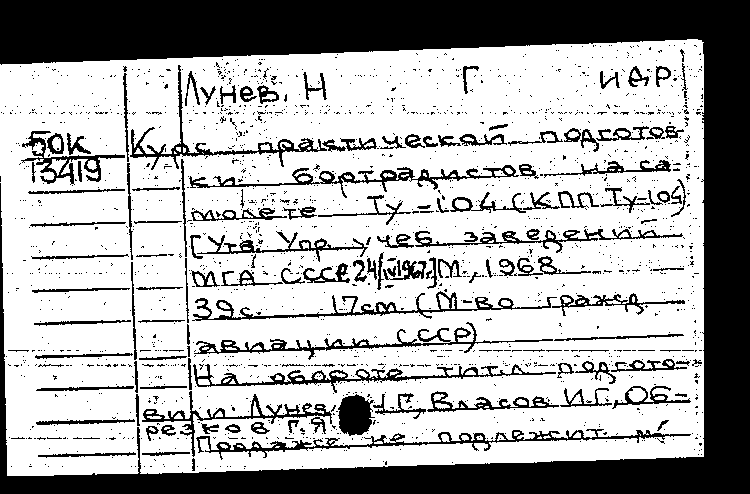 Лунев, Н Г и др.
БОК Курс практической подготов-
13419 ки бортрадистов на са-
молете Ту-104 (КПП Ту-104)
[Утв. Упр. учеб. заведений
МГА СССР 24/IV1967г.] М., 1968
39 с. 17 см. (М-во гражд.
авиации СССР)
На обороте тит.л. подгото-
вили: Лунев Н.Г., Власов И.Г., Об-
резков Г.Я.
Продаже не подлежит.